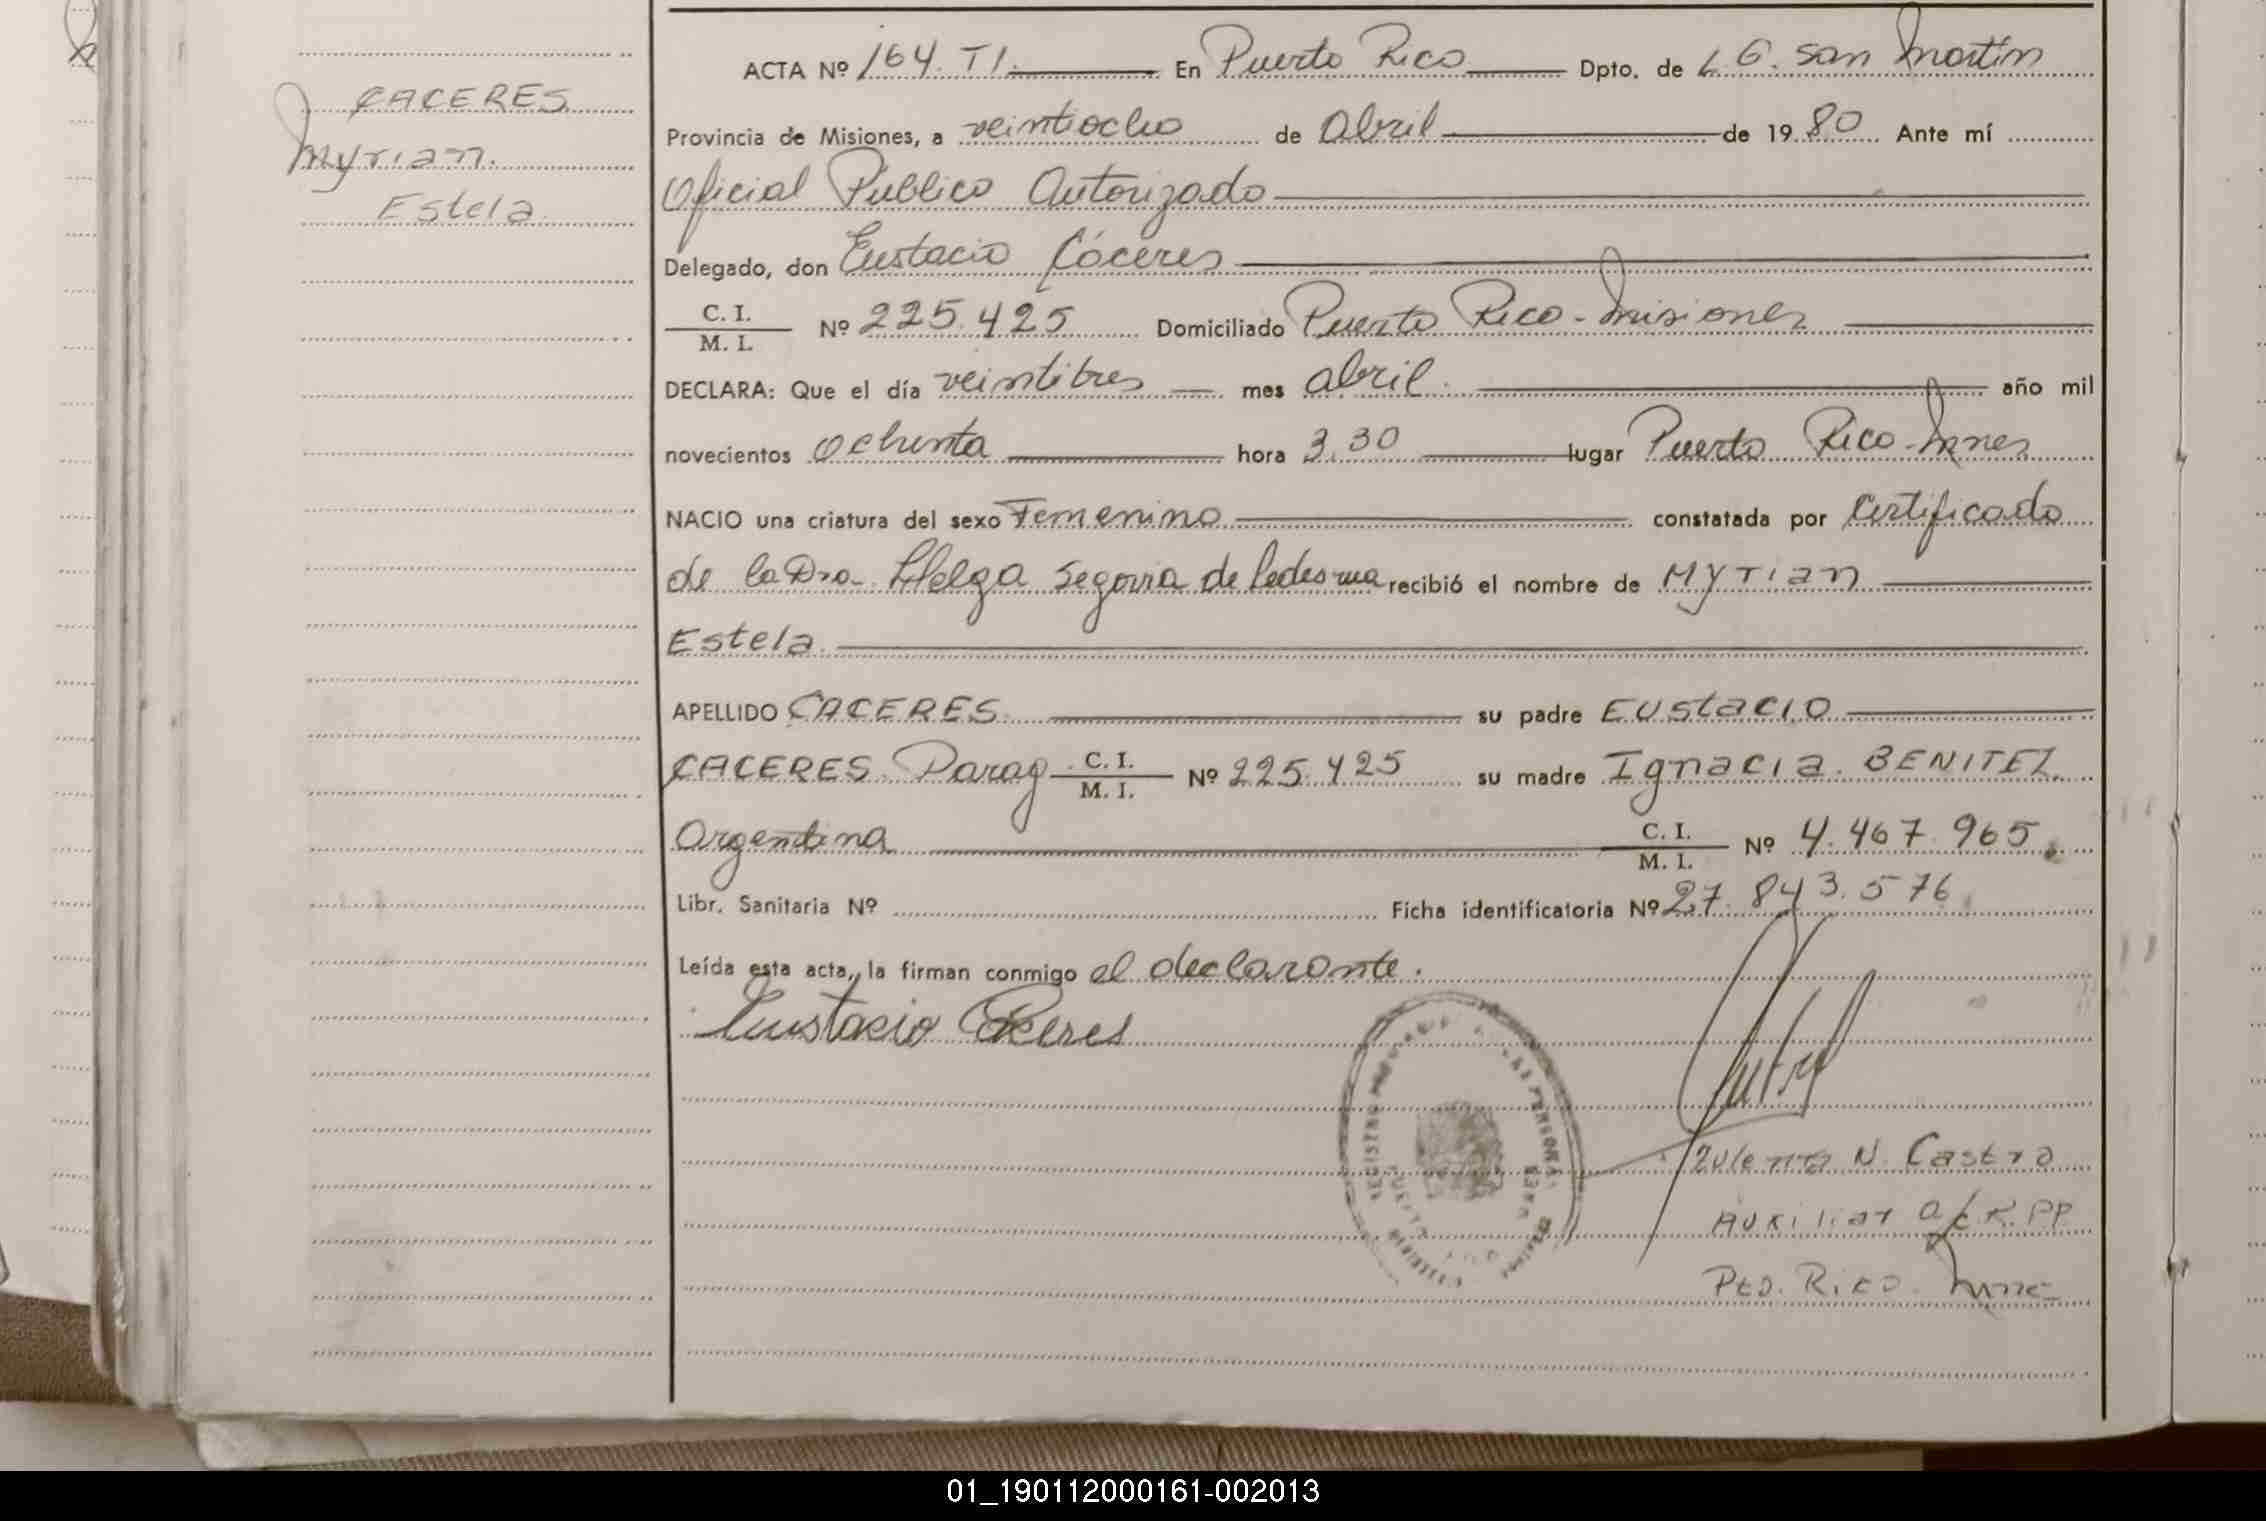 CACERES
Myrian.
Estela
ACTA Nº 164. T1. En Puerto Rico Dpto. de L G. San Martín
Provincia de Misiones, a veintiocho de Abril de 1980 Ante mí
Oficial Publico Autorizado
Delegado, don Eustacio Cáceres
C. I.
M. I.
Nº 225.425 Domiciliado Puerto Rico - Misiones
DECLARA: Que el día veintitres mes abril. año mil
novecientos ochenta hora 3.30 lugar Puerto Rico - Mnes
NACIO una criatura del sexo Femenino constatada por Certificado
de la Dra. Helga Segovia de Ledesma recibió el nombre de Myrian
Estela.
APELLIDO CACERES su padre EUstacio
CACERES. Parag C. I.
M. I.
Nº 225.425 su madre Ignacia. BENITEZ.
Argentina C. I.
M. I.
Nº 4.467.965.
Libr. Sanitaria Nº Ficha identificatoria Nº 27.843.576.
Leída esta acta, la firman conmigo el declarante.
Eustacio Caceres
N. Castro
Auxiliar a/c R. PP
Pto. Rico.
01_190112000161-002013